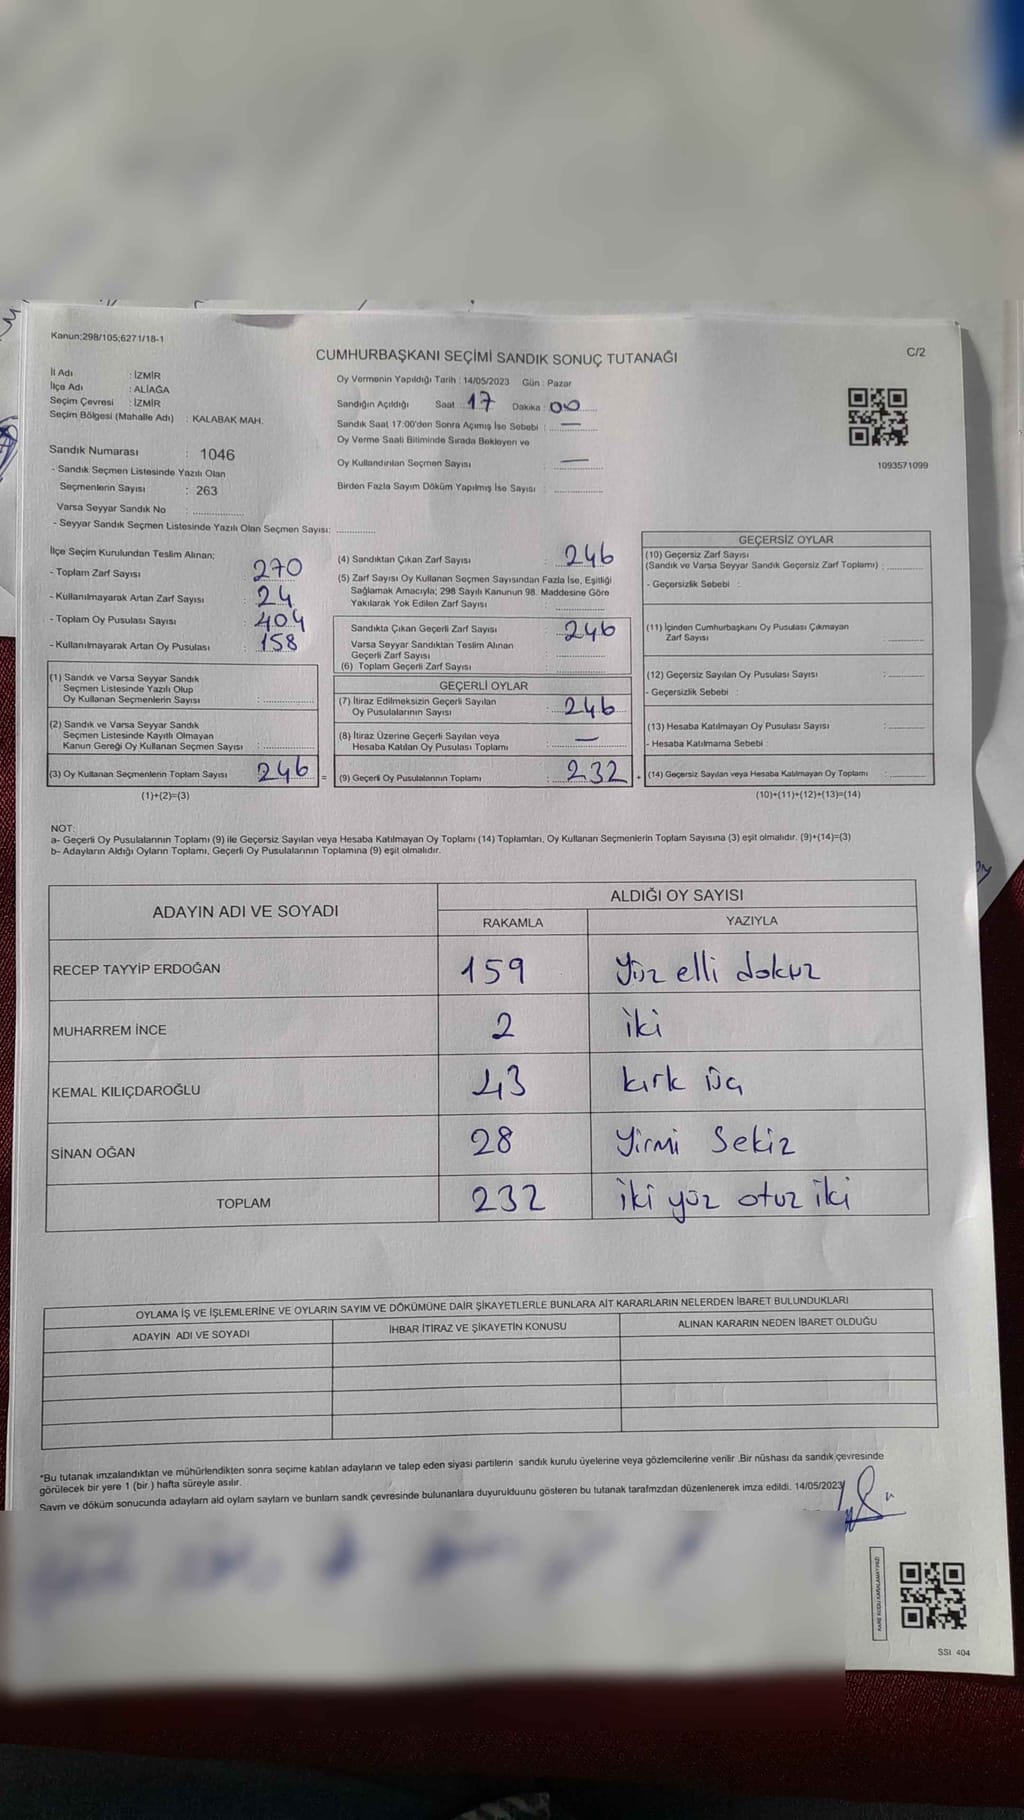 Kanun:298/105;6271/18-1
C/2
CUMHURBAŞKANI SEÇİMİ SANDIK SONUÇ TUTANAĞI
İl Adı : İZMİR
İlçe Adı : ALİAĞA
Seçim Çevresi : İZMİR
Seçim Bölgesi (Mahalle Adı) : KALABAK MAH.
Sandık Numarası : 1046
- Sandık Seçmen Listesinde Yazılı Olan
Seçmenlerin Sayısı : 263
Varsa Seyyar Sandık No :
- Seyyar Sandık Seçmen Listesinde Yazılı Olan Seçmen Sayısı:
Oy Vermenin Yapıldığı Tarih : 14/05/2023 Gün : Pazar
Sandığın Açıldığı Saat : 17 Dakika : 00
Sandık Saat 17:00'den Sonra Açımış İse Sebebi : —
Oy Verme Saati Bitiminde Sırada Bekleyen ve
Oy Kullandırılan Seçmen Sayısı : —
Birden Fazla Sayım Döküm Yapılmış İse Sayısı :
1093571099
İlçe Seçim Kurulundan Teslim Alınan;
- Toplam Zarf Sayısı : 270
- Kullanılmayarak Artan Zarf Sayısı : 24
- Toplam Oy Pusulası Sayısı : 404
- Kullanılmayarak Artan Oy Pusulası : 158
(1) Sandık ve Varsa Seyyar Sandık
Seçmen Listesinde Yazılı Olup
Oy Kullanan Seçmenlerin Sayısı :
(2) Sandık ve Varsa Seyyar Sandık
Seçmen Listesinde Kayıtlı Olmayan
Kanun Gereği Oy Kullanan Seçmen Sayısı :
(3) Oy Kullanan Seçmenlerin Toplam Sayısı : 246 =
(1)+(2)=(3)
(4) Sandıktan Çıkan Zarf Sayısı : 246
(5) Zarf Sayısı Oy Kullanan Seçmen Sayısından Fazla İse, Eşitliği
Sağlamak Amacıyla; 298 Sayılı Kanunun 98. Maddesine Göre
Yakılarak Yok Edilen Zarf Sayısı :
Sandıkta Çıkan Geçerli Zarf Sayısı : 246
Varsa Seyyar Sandıktan Teslim Alınan
Geçerli Zarf Sayısı :
(6) Toplam Geçerli Zarf Sayısı :
GEÇERLİ OYLAR
(7) İtiraz Edilmeksizin Geçerli Sayılan
Oy Pusulalarının Sayısı : 246
(8) İtiraz Üzerine Geçerli Sayılan veya
Hesaba Katılan Oy Pusulası Toplamı : —
(9) Geçerli Oy Pusulalarının Toplamı : 232 +
GEÇERSİZ OYLAR
(10) Geçersiz Zarf Sayısı
(Sandık ve Varsa Seyyar Sandık Geçersiz Zarf Toplamı) :
- Geçersizlik Sebebi :
(11) İçinden Cumhurbaşkanı Oy Pusulası Çıkmayan
Zarf Sayısı :
(12) Geçersiz Sayılan Oy Pusulası Sayısı :
- Geçersizlik Sebebi :
(13) Hesaba Katılmayan Oy Pusulası Sayısı :
- Hesaba Katılmama Sebebi :
(14) Geçersiz Sayılan veya Hesaba Katılmayan Oy Toplamı :
(10)+(11)+(12)+(13)=(14)
NOT:
a- Geçerli Oy Pusulalarının Toplamı (9) ile Geçersiz Sayılan veya Hesaba Katılmayan Oy Toplamı (14) Toplamları, Oy Kullanan Seçmenlerin Toplam Sayısına (3) eşit olmalıdır. (9)+(14)=(3)
b- Adayların Aldığı Oyların Toplamı, Geçerli Oy Pusulalarının Toplamına (9) eşit olmalıdır.
ADAYIN ADI VE SOYADI
ALDIĞI OY SAYISI
RAKAMLA YAZIYLA
RECEP TAYYİP ERDOĞAN 159 Yüz elli dokuz
MUHARREM İNCE 2 iki
KEMAL KILIÇDAROĞLU 43 kırk üç
SİNAN OĞAN 28 Yirmi Sekiz
TOPLAM 232 iki yüz otuz iki
OYLAMA İŞ VE İŞLEMLERİNE VE OYLARIN SAYIM VE DÖKÜMÜNE DAİR ŞİKAYETLERLE BUNLARA AİT KARARLARIN NELERDEN İBARET BULUNDUKLARI
ADAYIN ADI VE SOYADI İHBAR İTİRAZ VE ŞİKAYETİN KONUSU ALINAN KARARIN NEDEN İBARET OLDUĞU
*Bu tutanak imzalandıktan ve mühürlendikten sonra seçime katılan adayların ve talep eden siyasi partilerin sandık kurulu üyelerine veya gözlemcilerine verilir .Bir nüshası da sandık çevresinde
görülecek bir yere 1 (bir ) hafta süreyle asılır.
Sayım ve döküm sonucunda adayların ald oyların sayların ve bunların sandk çevresinde bulunanlara duyurulduunu gösteren bu tutanak tarafmzdan düzenlenerek imza edildi. 14/05/2023
SSI 404